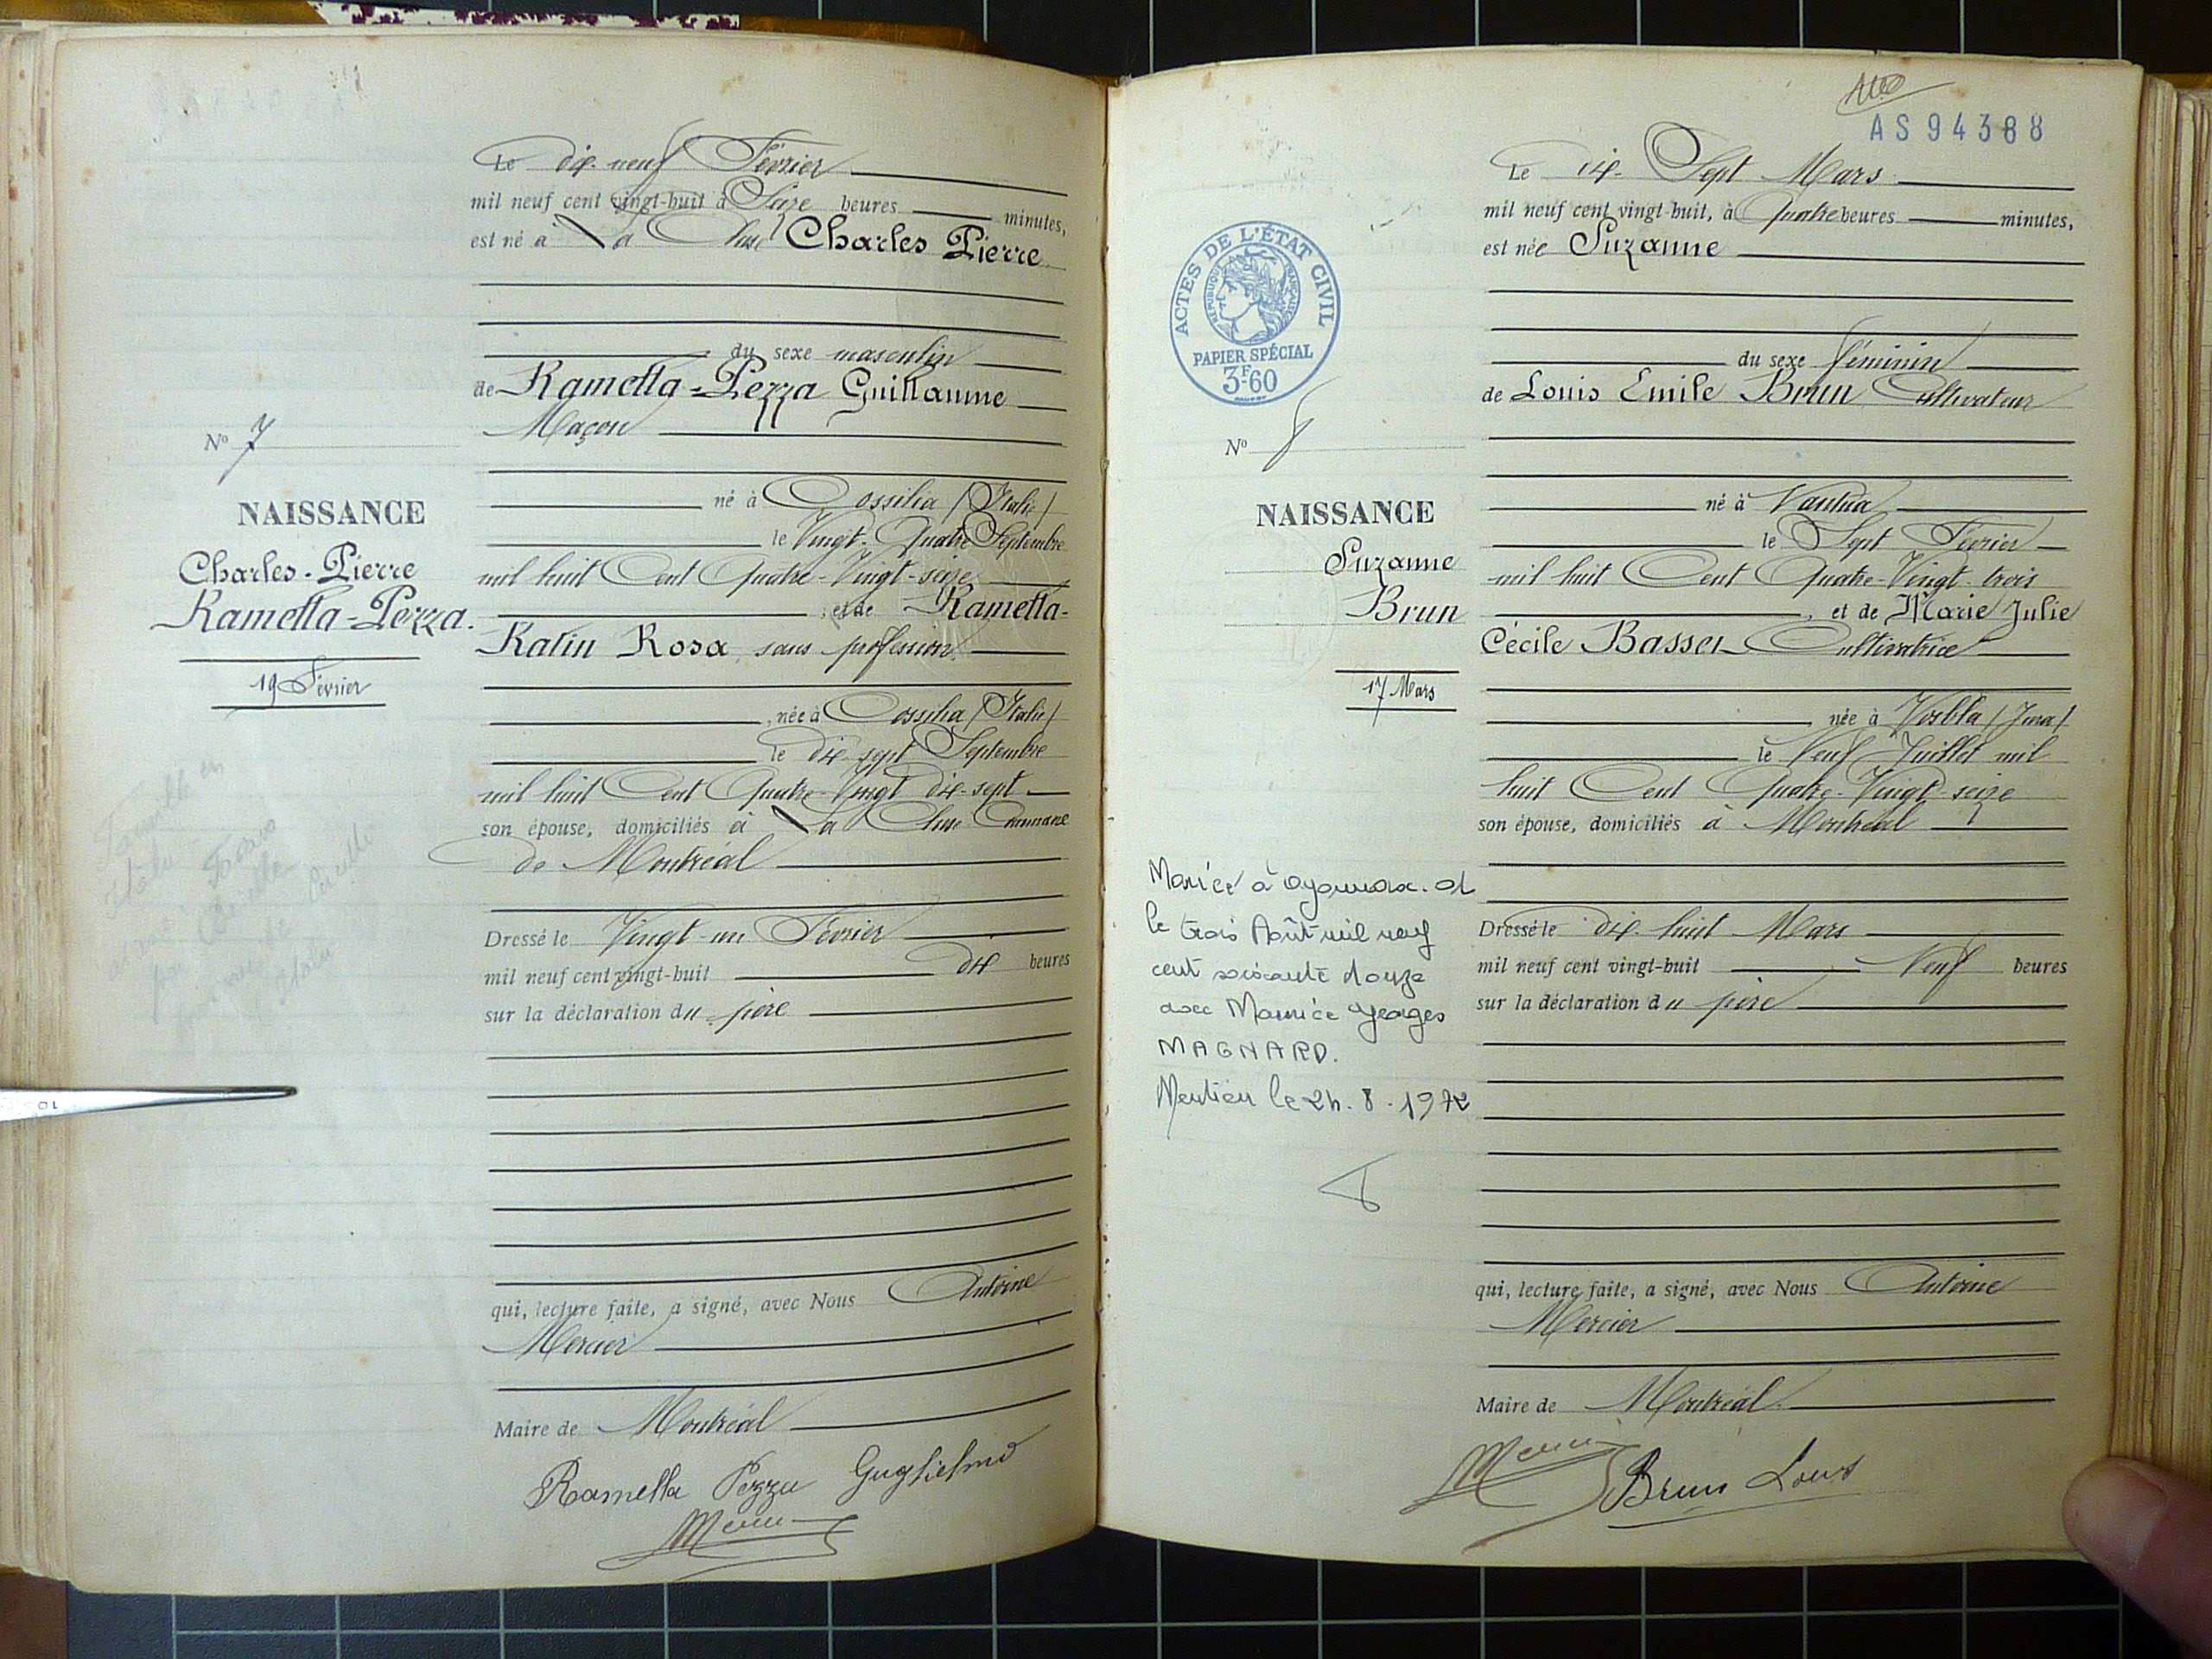 Le dix-neuf Février
mil neuf cent vingt-huit à Seize heures minutes,
est né à La Cluse Charles Pierre
du sexe masculin
de Ramella-Pezza Guillaume
Maçon
né à Cossilia (Italie)
le Vingt-Quatre Septembre
mil huit Cent Quatre-Vingt-seize
, et de Ramella-
Ratin Rosa sans profession
, née à Cossilia (Italie)
le dix-sept Septembre
mil huit Cent Quatre-Vingt dix-sept
son épouse, domiciliés à La Cluse Commune
de Montréal
Dressé le Vingt-un Février
mil neuf cent vingt-huit dix heures
sur la déclaration du père
qui, lecture faite, a signé, avec Nous Antoine
Mercier
Maire de Montréal
Ramella Pezza Guglielmo
Mercier
No 7
NAISSANCE
Charles-Pierre
Ramella-Pezza.
19 Février
AS 94388
Le dix-Sept Mars
mil neuf cent vingt-huit, à Quatre heures minutes,
est née Suzanne
du sexe féminin
de Louis Emile Brun Cultivateur
né à
le Sept Février
mil huit Cent Quatre-Vingt-trois
, et de Marie Julie
Cécile Basset Cultivatrice
née à (Jura)
le Neuf Juillet mil
huit Cent Quatre-Vingt-seize
son épouse, domiciliés à Montréal
Dressé le dix-huit Mars
mil neuf cent vingt-huit Neuf heures
sur la déclaration du père
qui, lecture faite, a signé, avec Nous Antoine
Mercier
Maire de Montréal
Mercier Brun Louis
ACTES DE L'ÉTAT CIVIL
RÉPUBLIQUE FRANÇAISE
PAPIER SPÉCIAL
3F60
No 8
NAISSANCE
Suzanne
Brun
17 Mars
Mariée à Oyonnax. 01
le trois Août mil neuf
cent soixante douze
avec Maurice Georges
MAGNARD.
Mention le 24.8.1972